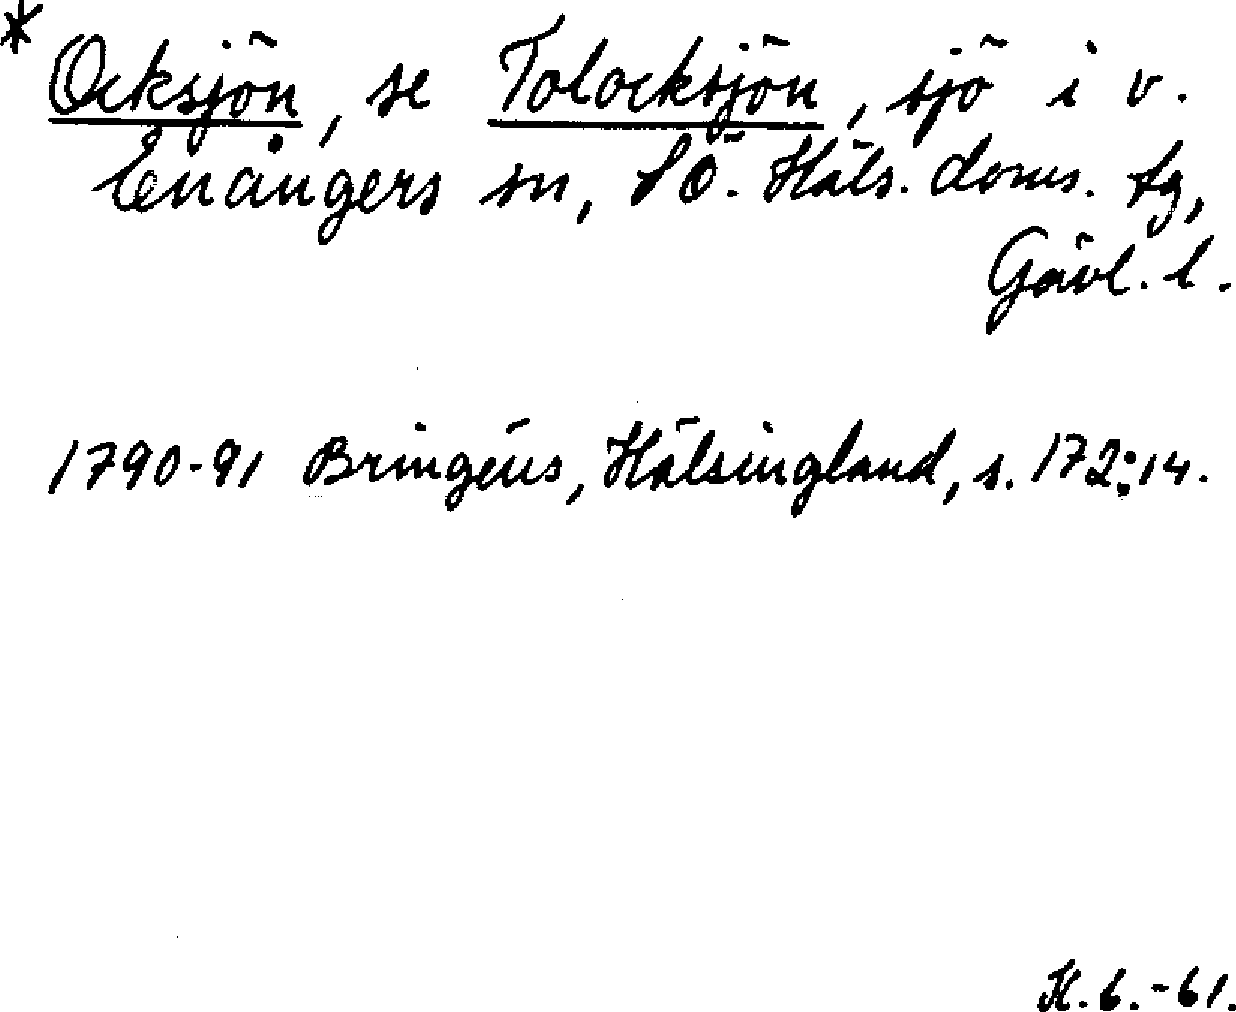 * Ocksjön, se Tolocksjön, sjö i v.
Enångers sn, SÖ. Häls. doms. tg,
Gävl. l.
1790-91 Bringéus, Hälsingland, s. 172:14.
H. 6.-61.